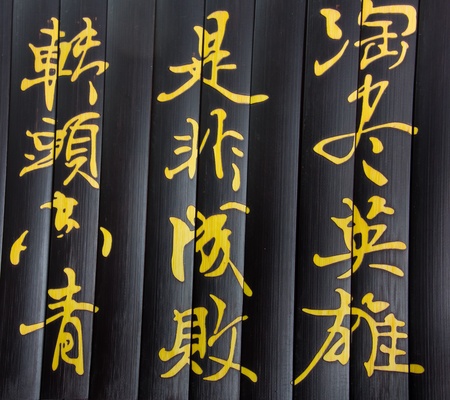 淘尽英雄
是非成敗
轉頭空青